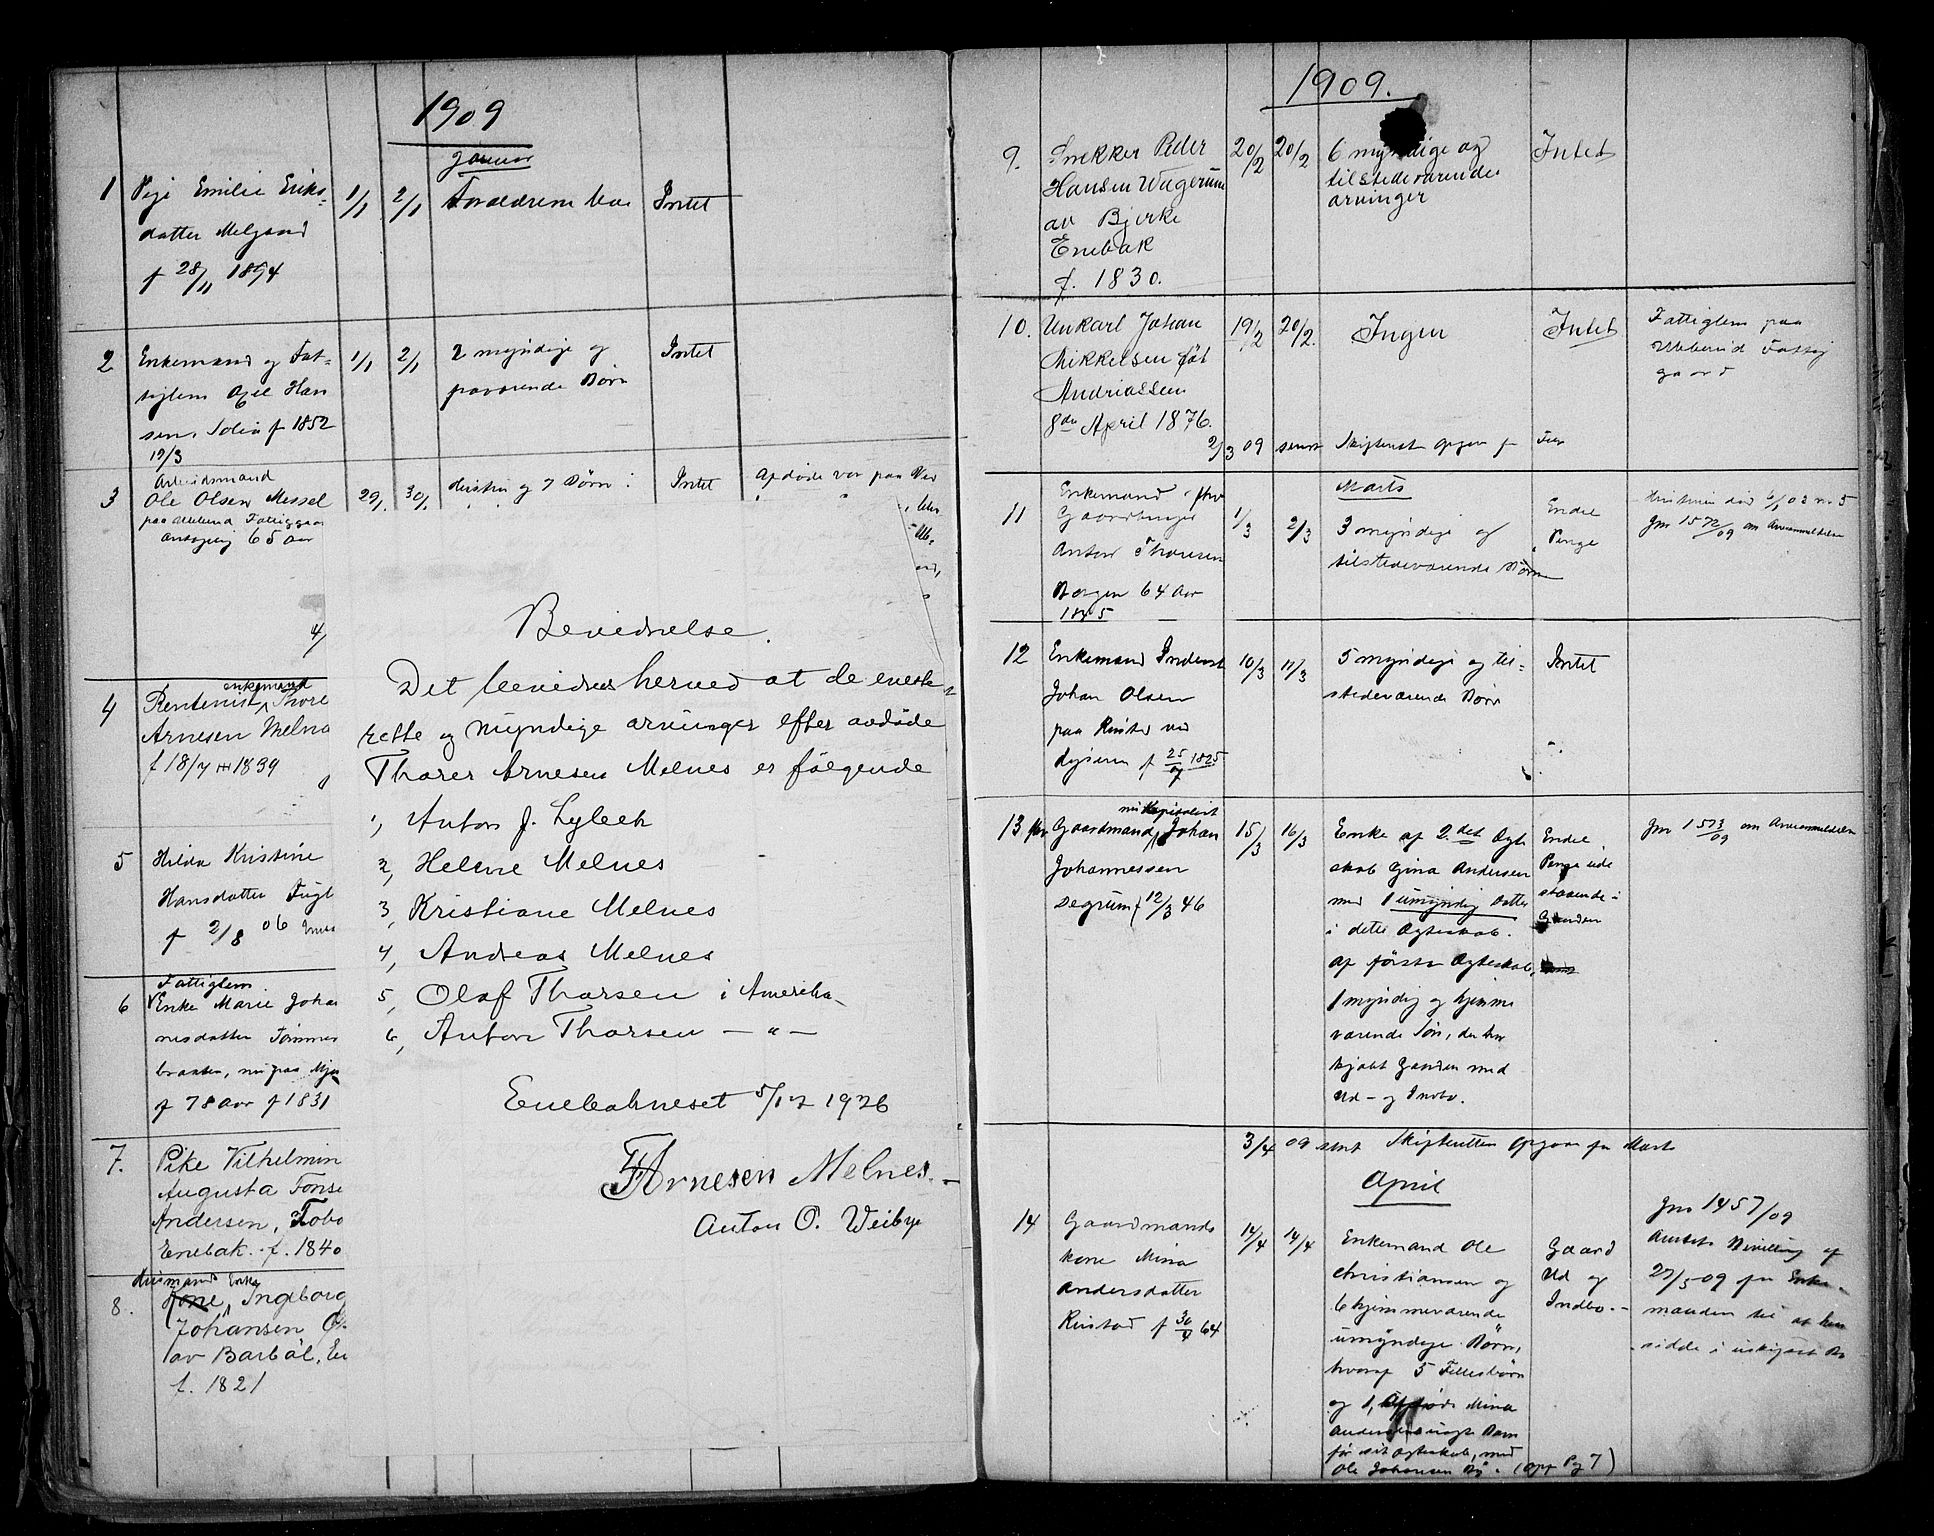 1909
Januar
1
Pige Emilie Eriks-
datter Melgaard
f 28/11 1894
1/1
2/1
Forældrene
Intet
2
Enkemand og Fat-
tiglem Axel Han
sen, f 1852
19/3
1/1
2/1
2 myndige og
Børn
Intet
3
Arbeidsmand
Ole Olsen Messel
paa Fattiggaar
antagelig 65 aar
29/1
30/1
Hustru og 7 Børn
Intet
Afdøde var paa
4/
4
enkemand
Rentenist Thore
Arnesen Melna
f 18/7 1839
5
Hilda Kristine
Hansdatter Fugl
f 2/8 06
6
Fattiglem
Enke Marie Joha
nesdatter Tømmer
braaten, nu paa
f 78 aar f 1831
7.
Pike Vilhelmin
Augusta Tonse
Andersen, Tobo
Enebak. f. 1840
8.
Husmands Enke
Kone, Ingeborg
Johansen
av Barbøl, En
f. 1821
Bevidnelse.
Det bevidnes herved at de eneste
rette og myndige arvinger efter avdøde
Thorer Arnesen Melnes er følgende
1, Anton J. Lylech
2, Helene Melnes
3, Kristiane Melnes
4, Andreas Melnes
5, Olaf Thorsen i Amerika
6, Anton Thorsen — " —
Enebakneset 5/12 1926
T Arnesen Melnes.
Anton O. Weibye
1909.
9.
Snekker Peder
Hansen Wagerum
av Bjerke
Enebak
f. 1830.
20/2
20/2
6 myndige og
tilstedeværende
arvinger
Intet
10.
Unkarl Johan
Mikkelsen født
Andriassen
8de April 1876.
19/2
20/2.
Ingen
Intet
Fattiglem paa
Fattig
gaard
2/3 09 sendt Skifteret Opgave f Feb
Marts
11
Enkemand, fhv
Gaardbruger
Anton Thoresen
Borgen 64 Aar
1845
1/3
2/3
3 myndige og
tilstedeværende Børn
Endel
Penge
Hustruen død 6/1 02 no 5
Jm 1572/09 om Arveanmeldelse
12
Enkemand Inderst
Johan Olsen
paa Rustad ved
f 25 1825
10/3
11/3
5 myndige og til-
stedeværende Børn
Intet
13
fhv Gaardmand, nu Kapitalist Johan
Johannessen
Degrum f 12/3 46
15/3
16/3
Enke af 2.det Ægte
skab Gina Andersen
med 1 umyndig Datter
i dette Ægteskab.
af første Ægteskab,
1 myndig og hjemme
værende Søn, der har
kjøbt Gaarden med
Ud- og Indbo.
Endel
Penge ude
staaende i
Gaarden
Jm 1573/09 om Arveanmeldelse
3/4 09 sendt Skifteretten Opgave for Marts
April
14
Gaardmands
kone Mina
Andersdatter
Rustad f 30 64
14/4
14/4
Enkemand Ole
Christiansen og
6 hjemmeværende
umyndige Børn,
hvoraf 5 Fællesbørn
og 1, Afdøde Mina
Barn
før sit Ægteskab, med
Ole Johansen
(opf Pg 7)
Gaard
Ud og
Indbo.
Jm 1457/09
Amtets Bevilling af
27/5 09 for Enke-
manden til at hen
sidde i uskiftet Bo